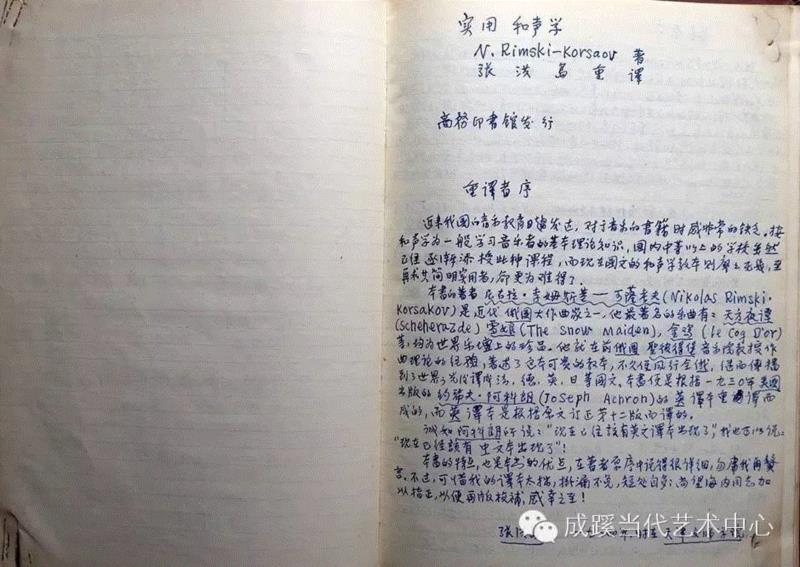 实用 和声学
N. Rimski-Korsaov 著
张洪岛重译
商務印書館发行
重译者序
近来我国的音乐教育日趋发达，对于音乐的書籍时感非常的缺乏。按
和声学为一般学习音乐者的基本理论知识，国内中等以上的学校虽然
已经逐渐添授此种课程，而现在国文的和声学教本则寥寥无几，至
再求其简明实用者，斯更为难得了。
本書的著者尼古拉·李姆斯基—可薩考夫(Nikolas Rimski-
Korsakov)是近代俄国大作曲家之一，他最著名的乐曲有：天方夜谭
(Scheherazde) 雪娘(The Snow Maiden)，金鸡 (le Coq D'or)
等，均为世界乐壇上的珍品。他就在前俄国聖彼得堡音乐院教授作
曲理论的经验，著述了这本可贵的教本，不久便风行全俄，进而传播
到了世界；先后译成法、德、英、日等国文，本書便是根据一九三〇年美国
出版的约瑟夫·阿科朗(Joseph Achron)的英译本重译而
成的，而英译本是根据原文订正第十二版而译的。
诚如阿科朗所说："现在已经該有英文译本出现了"，我也可以说：
"现在已经該有中文本出现了"！
本書的特点，也是本書的优点，在著者原序中说得很详细，勿庸我再贅
言。不过，可惜我的译本太拙，掛漏不免，短处自多；尚望海内同志加
以指正，以便再版校補，感幸之至！
张洪
成蹊当代艺术中心